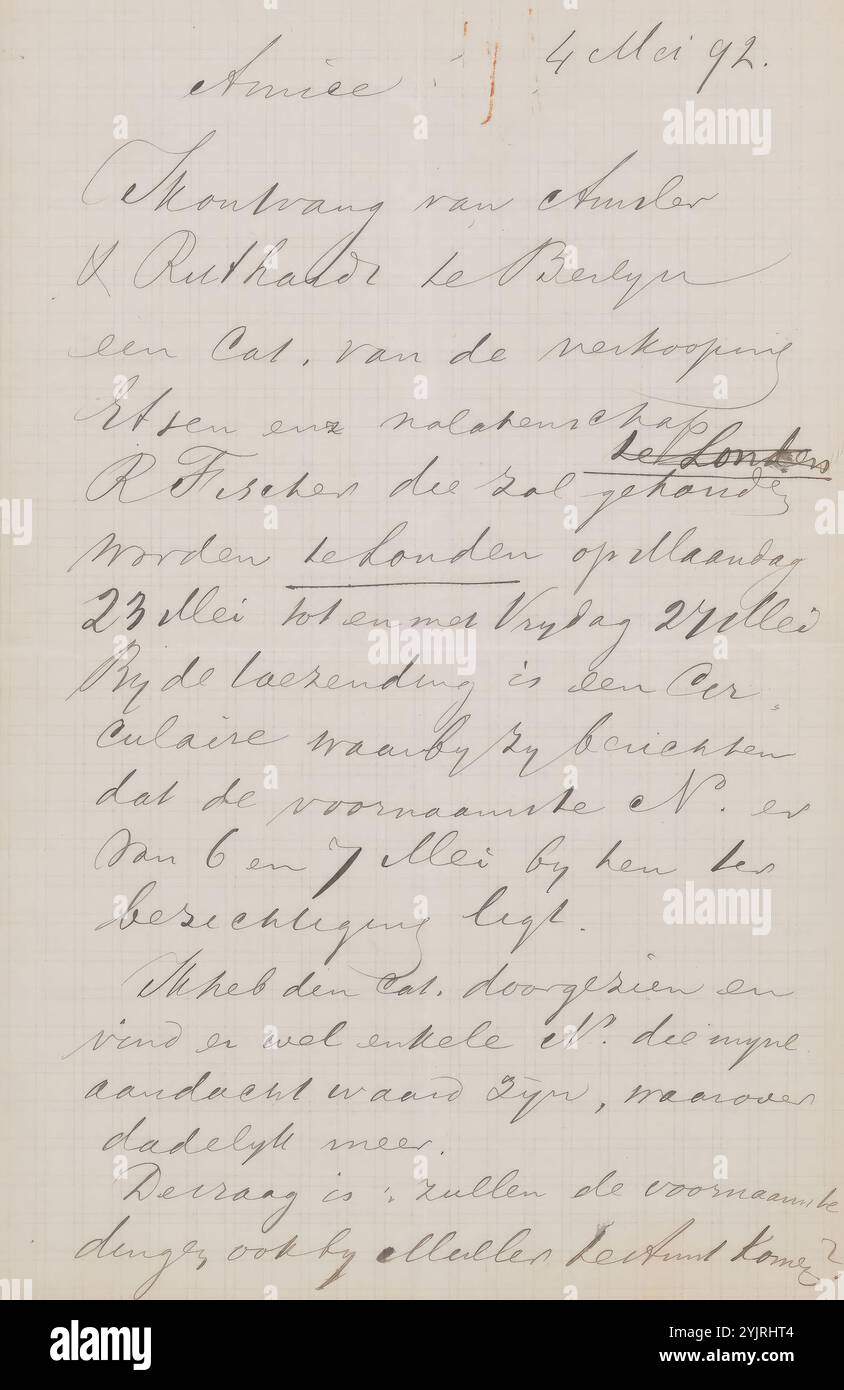 4 Mei 92.
Amice
Ik ontvang van Amsler
& Ruthardt te Berlyn
een Cat. van de verkooping
Etsen enz nalatenschap
te Londen
R Fischer die zal gehouden
worden te Londen op Maandag
23 Mei tot en met Vrydag 27 Mei
By de toezending is een Cir-
culaire waarby zy berichten
dat de voornaamste N. er
van 6 en 7 Mei by hen ter
bezichtiging ligt.
Ik heb den Cat. doorgezien en
vind er wel enkele N. die myne
aandacht waard zyn, waarover
dadelyk meer.
De vraag is: zullen de voornaamste
dingen ook by Muller te Amst komen?
alamy
Image ID: 2YJRHT4
www.alamy.com